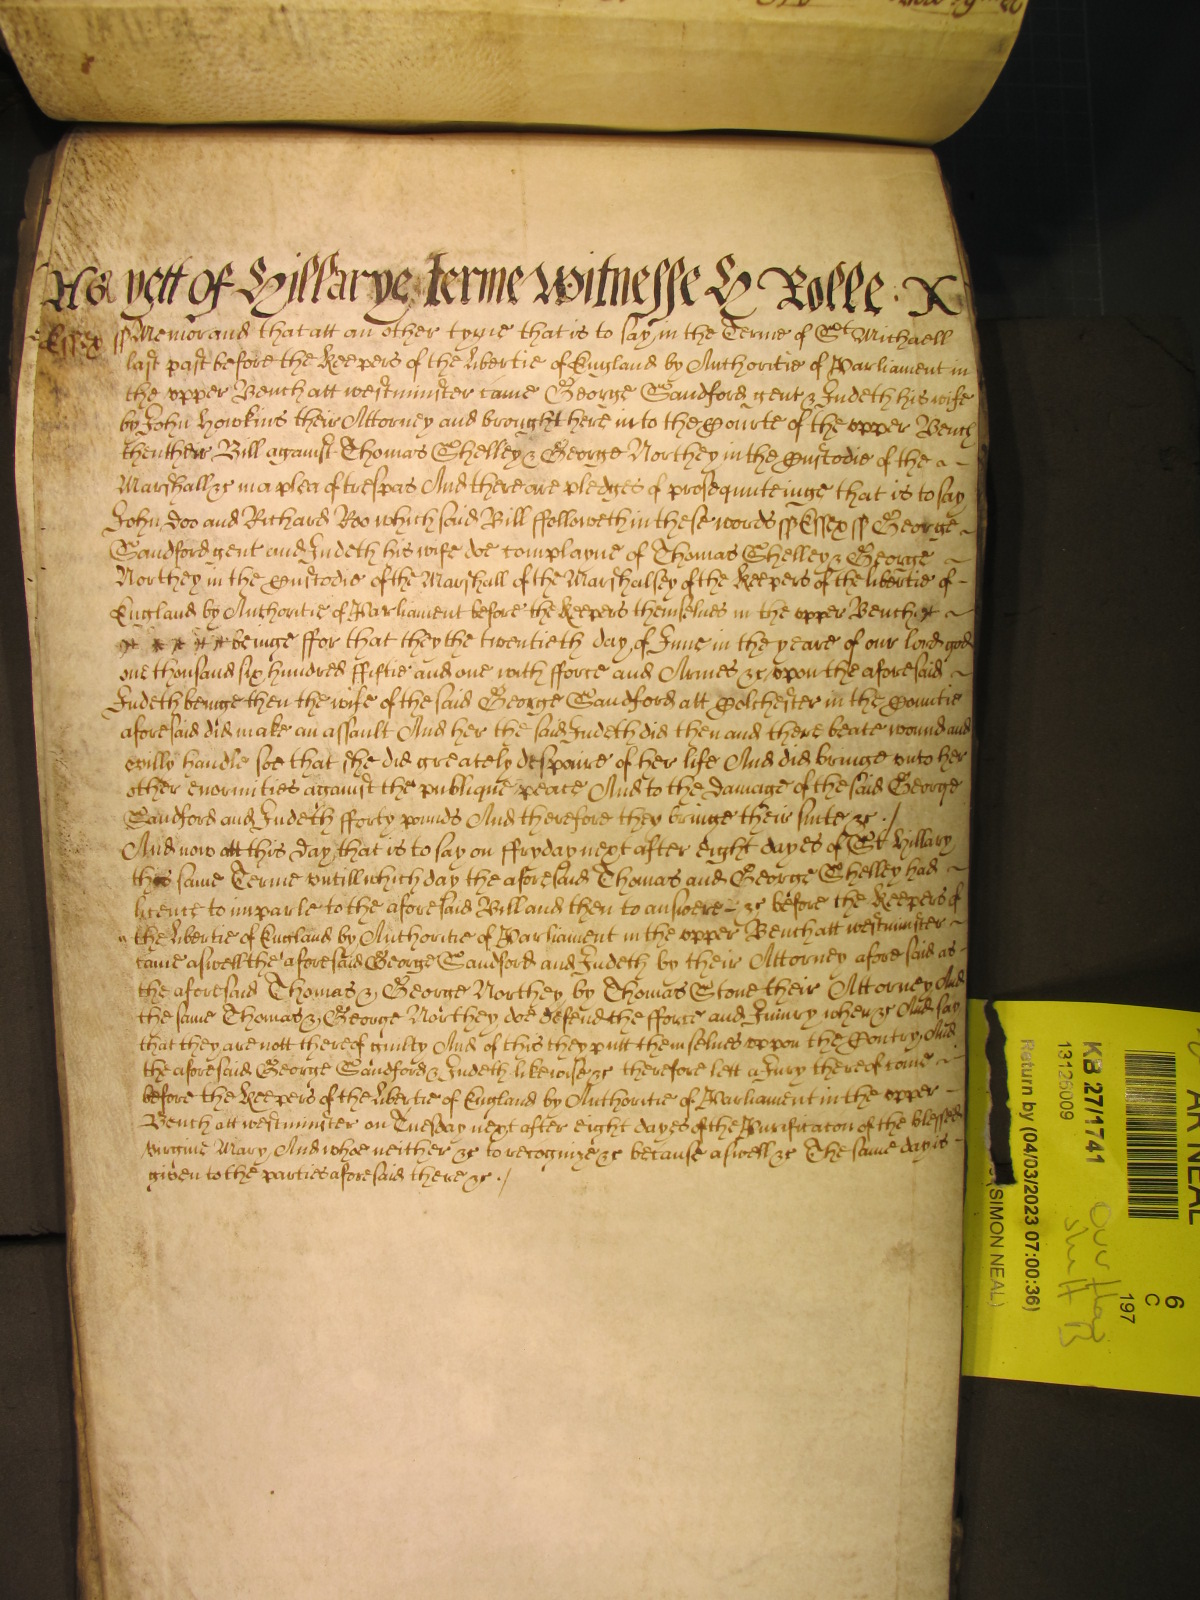 As yett of Hillarye Terme Witnesse H Rolle . X
Essex ss Memorand that att an other tyme that is to say in the Terme of St Michaell
last past before the Keepers of the libertie of England by Authoritie of Parliament in
the vpper Bench att westminster came George Sandford gent & Judeth his wife
by John Howkins their Attorney and brought here into the Courte of the vpper Bench
then their Bill against Thomas Shelley & George Northey in the Custodie of the
Marshall &c in a plea of trespas And there are pledges of prosequuteinge that is to say
John Doo and Richard Roo which said Bill ffolloweth in these words ss Essex ss George
Sandford gent and Judeth his wife doe complayne of Thomas Shelley & George
Northey in the Custodie of the Marshall of the Marshalsey of the Keepers of the libertie of
England by Authoritie of Parliament before the Keepers themselues in the vpper Bench
beinge ffor that they the twentieth day of June in the yeare of our lord god
one thousand six hundred ffiftie and one with fforce and Armes &c vpon the aforesaid
Judeth beinge then the wife of the said George Sandford att Colchester in the Countie
aforesaid did make an assault And her the said Judeth did then and there beate wound and
evilly handle soe that she did greately despaire of her life And did bringe vnto her
other enormities against the publique peace And to the Damage of the said George
Sandford and Judeth fforty pounds And therefore they bringe their suite &c . /
And now att this day that is to say on ffryday next after eight dayes of St Hillary
this same Terme vntill which day the aforesaid Thomas and George Shelley had
licence to imparle to the aforesaid Bill and then to answere &c before the Keepers of
the libertie of England by Authoritie of Parliament in the vpper Bench att westminster
came aswell the aforesaid George Sandford and Judeth by their Attorney aforesaid as
the aforesaid Thomas & George Northey by Thomas Stone their Attorney And
the same Thomas & George Northey doe defend the fforce and Iniury when &c And say
that they are nott thereof guilty And of this they putt themselues vppon the Contry And
the aforesaid George Sandford & Judeth likewise &c therefore lett a Jury thereof come
before the Keepers of the libertie of England by Authoritie of Parliament in the vpper
Bench att westminster on Tuesday next after eight dayes of the Purificacon of the blessed
virgine Mary And whoe neither &c to recognize &c because aswell &c The same day is
given to the parties aforesaid there &c . /
AR NEAL
6
C
197
KB 27/1741
13126009
Return by (04/03/2023 07:00:36)
(SIMON NEAL)